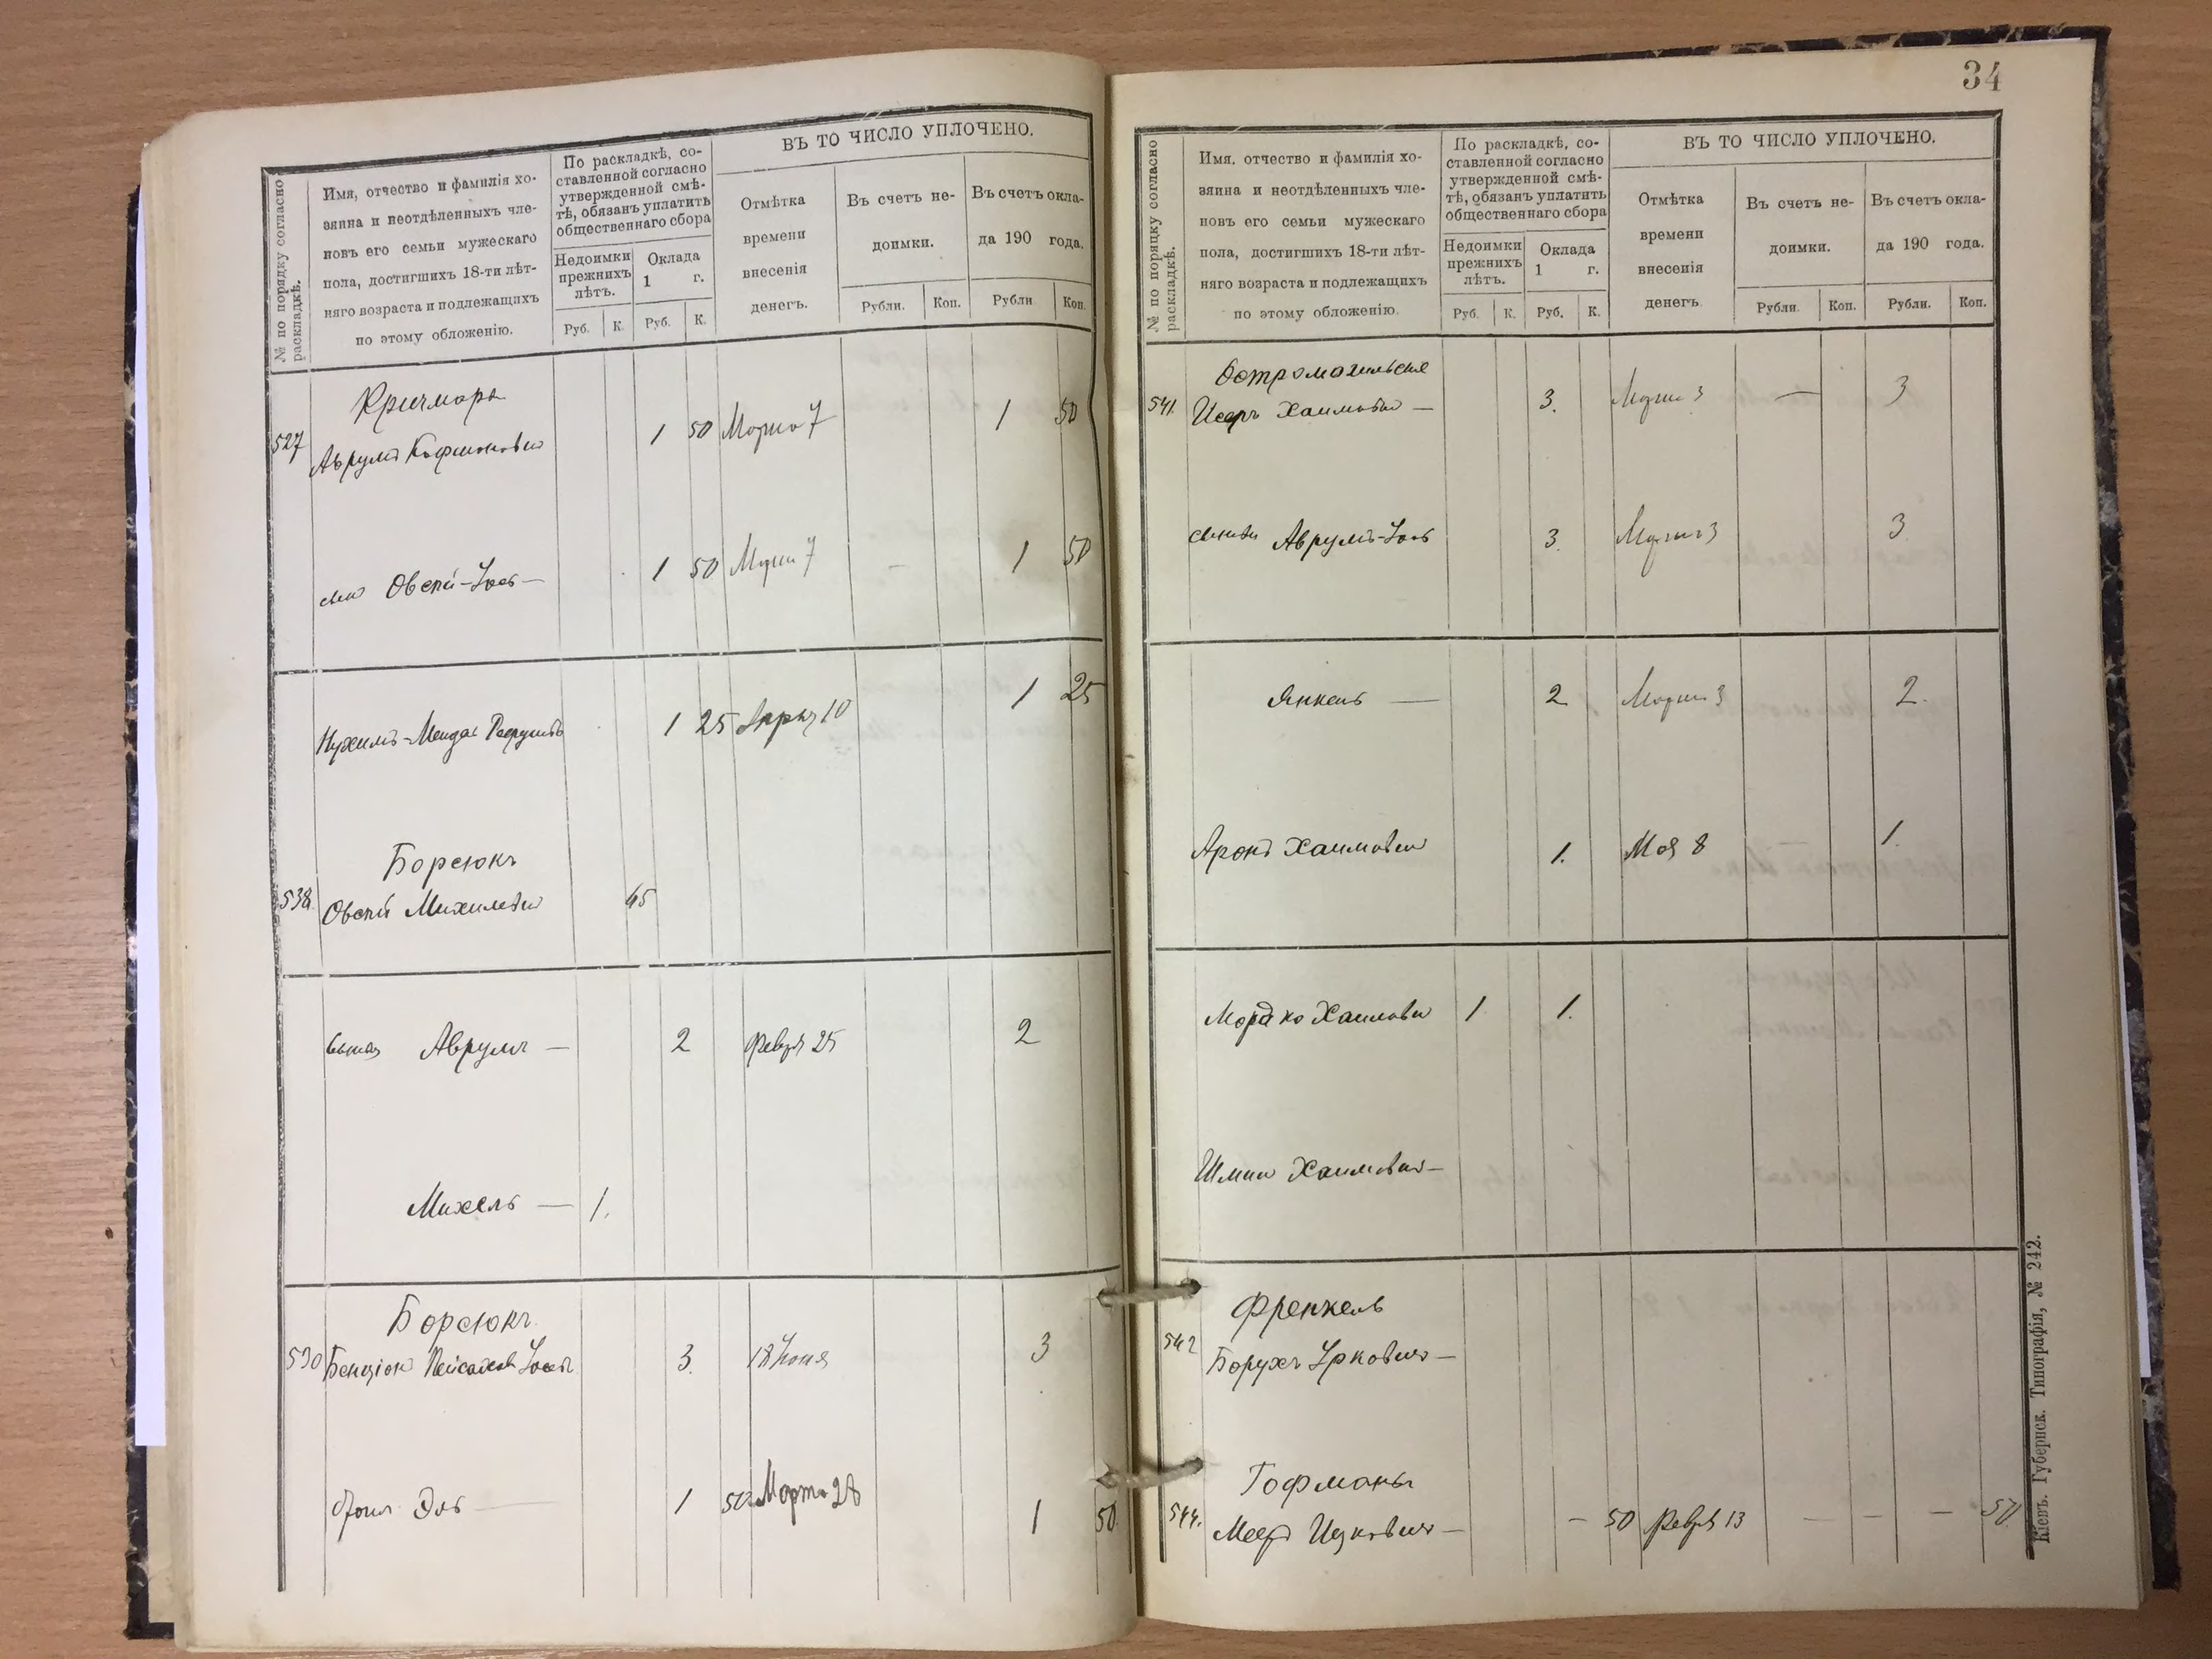 № по порядку согласно раскладкѣ.
Имя, отчество и фамилія хо-
зяина и неотдѣленныхъ чле-
новъ его семьи мужескаго
пола, достигшихъ 18-ти лѣт-
няго возраста и подлежащихъ
по этому обложенію.
По раскладкѣ, со-
ставленной согласно
утвержденной смѣ-
тѣ, обязанъ уплатить
общественнаго сбора
Недоимки
прежнихъ
лѣтъ.
Оклада
1 г.
Руб. К. Руб. К.
ВЪ ТО ЧИСЛО УПЛОЧЕНО.
Отмѣтка
времени
внесенія
денегъ.
Въ счетъ не-
доимки.
Въ счетъ окла-
да 190 года.
Рубли. Коп. Рубли Коп.
527
1 50 Марта 7 1 50
Овсей-Іось — 1 50 Марта 7 — 1 50
Нухимъ-Мендель 1 25 10 1 25
Борсюкъ
538 Овсей Михелевъ 45
Аврумъ — 2 Февр 25 2
Михель — 1.
Борсюкъ
530 Бенціонъ 3. 18 Іюня 3
Эль 1 50 Марта 28 1 50
34
№ по порядку согласно раскладкѣ.
Имя. отчество и фамилія хо-
зяина и неотдѣленныхъ чле-
новъ его семьи мужескаго
пола, достигшихъ 18-ти лѣт-
няго возраста и подлежащихъ
по этому обложенію.
По раскладкѣ, со-
ставленной согласно
утвержденной смѣ-
тѣ, обязанъ уплатить
общественнаго сбора
Недоимки
прежнихъ
лѣтъ.
Оклада
1 г.
Руб. К. Руб. К.
ВЪ ТО ЧИСЛО УПЛОЧЕНО.
Отмѣтка
времени
внесенія
денегъ.
Въ счетъ не-
доимки.
Въ счетъ окла-
да 190 года.
Рубли. Коп. Рубли. Коп.
541. Хаимовъ — 3. Марта 3 — 3
Аврумъ-Іось 3. Марта 3 3
Янкель — 2 Марта 3 2.
Аронъ Хаимовъ 1. Мая 8 1.
Мордко Хаимовъ 1 1.
Хаимовичъ —
Френкель
542 Борухъ Ірковичъ —
Гофманъ
544. Мееръ Ицковичъ — — 50 Февр 13 — — — 50
Кіевъ. Губернск. Типографія, № 242.